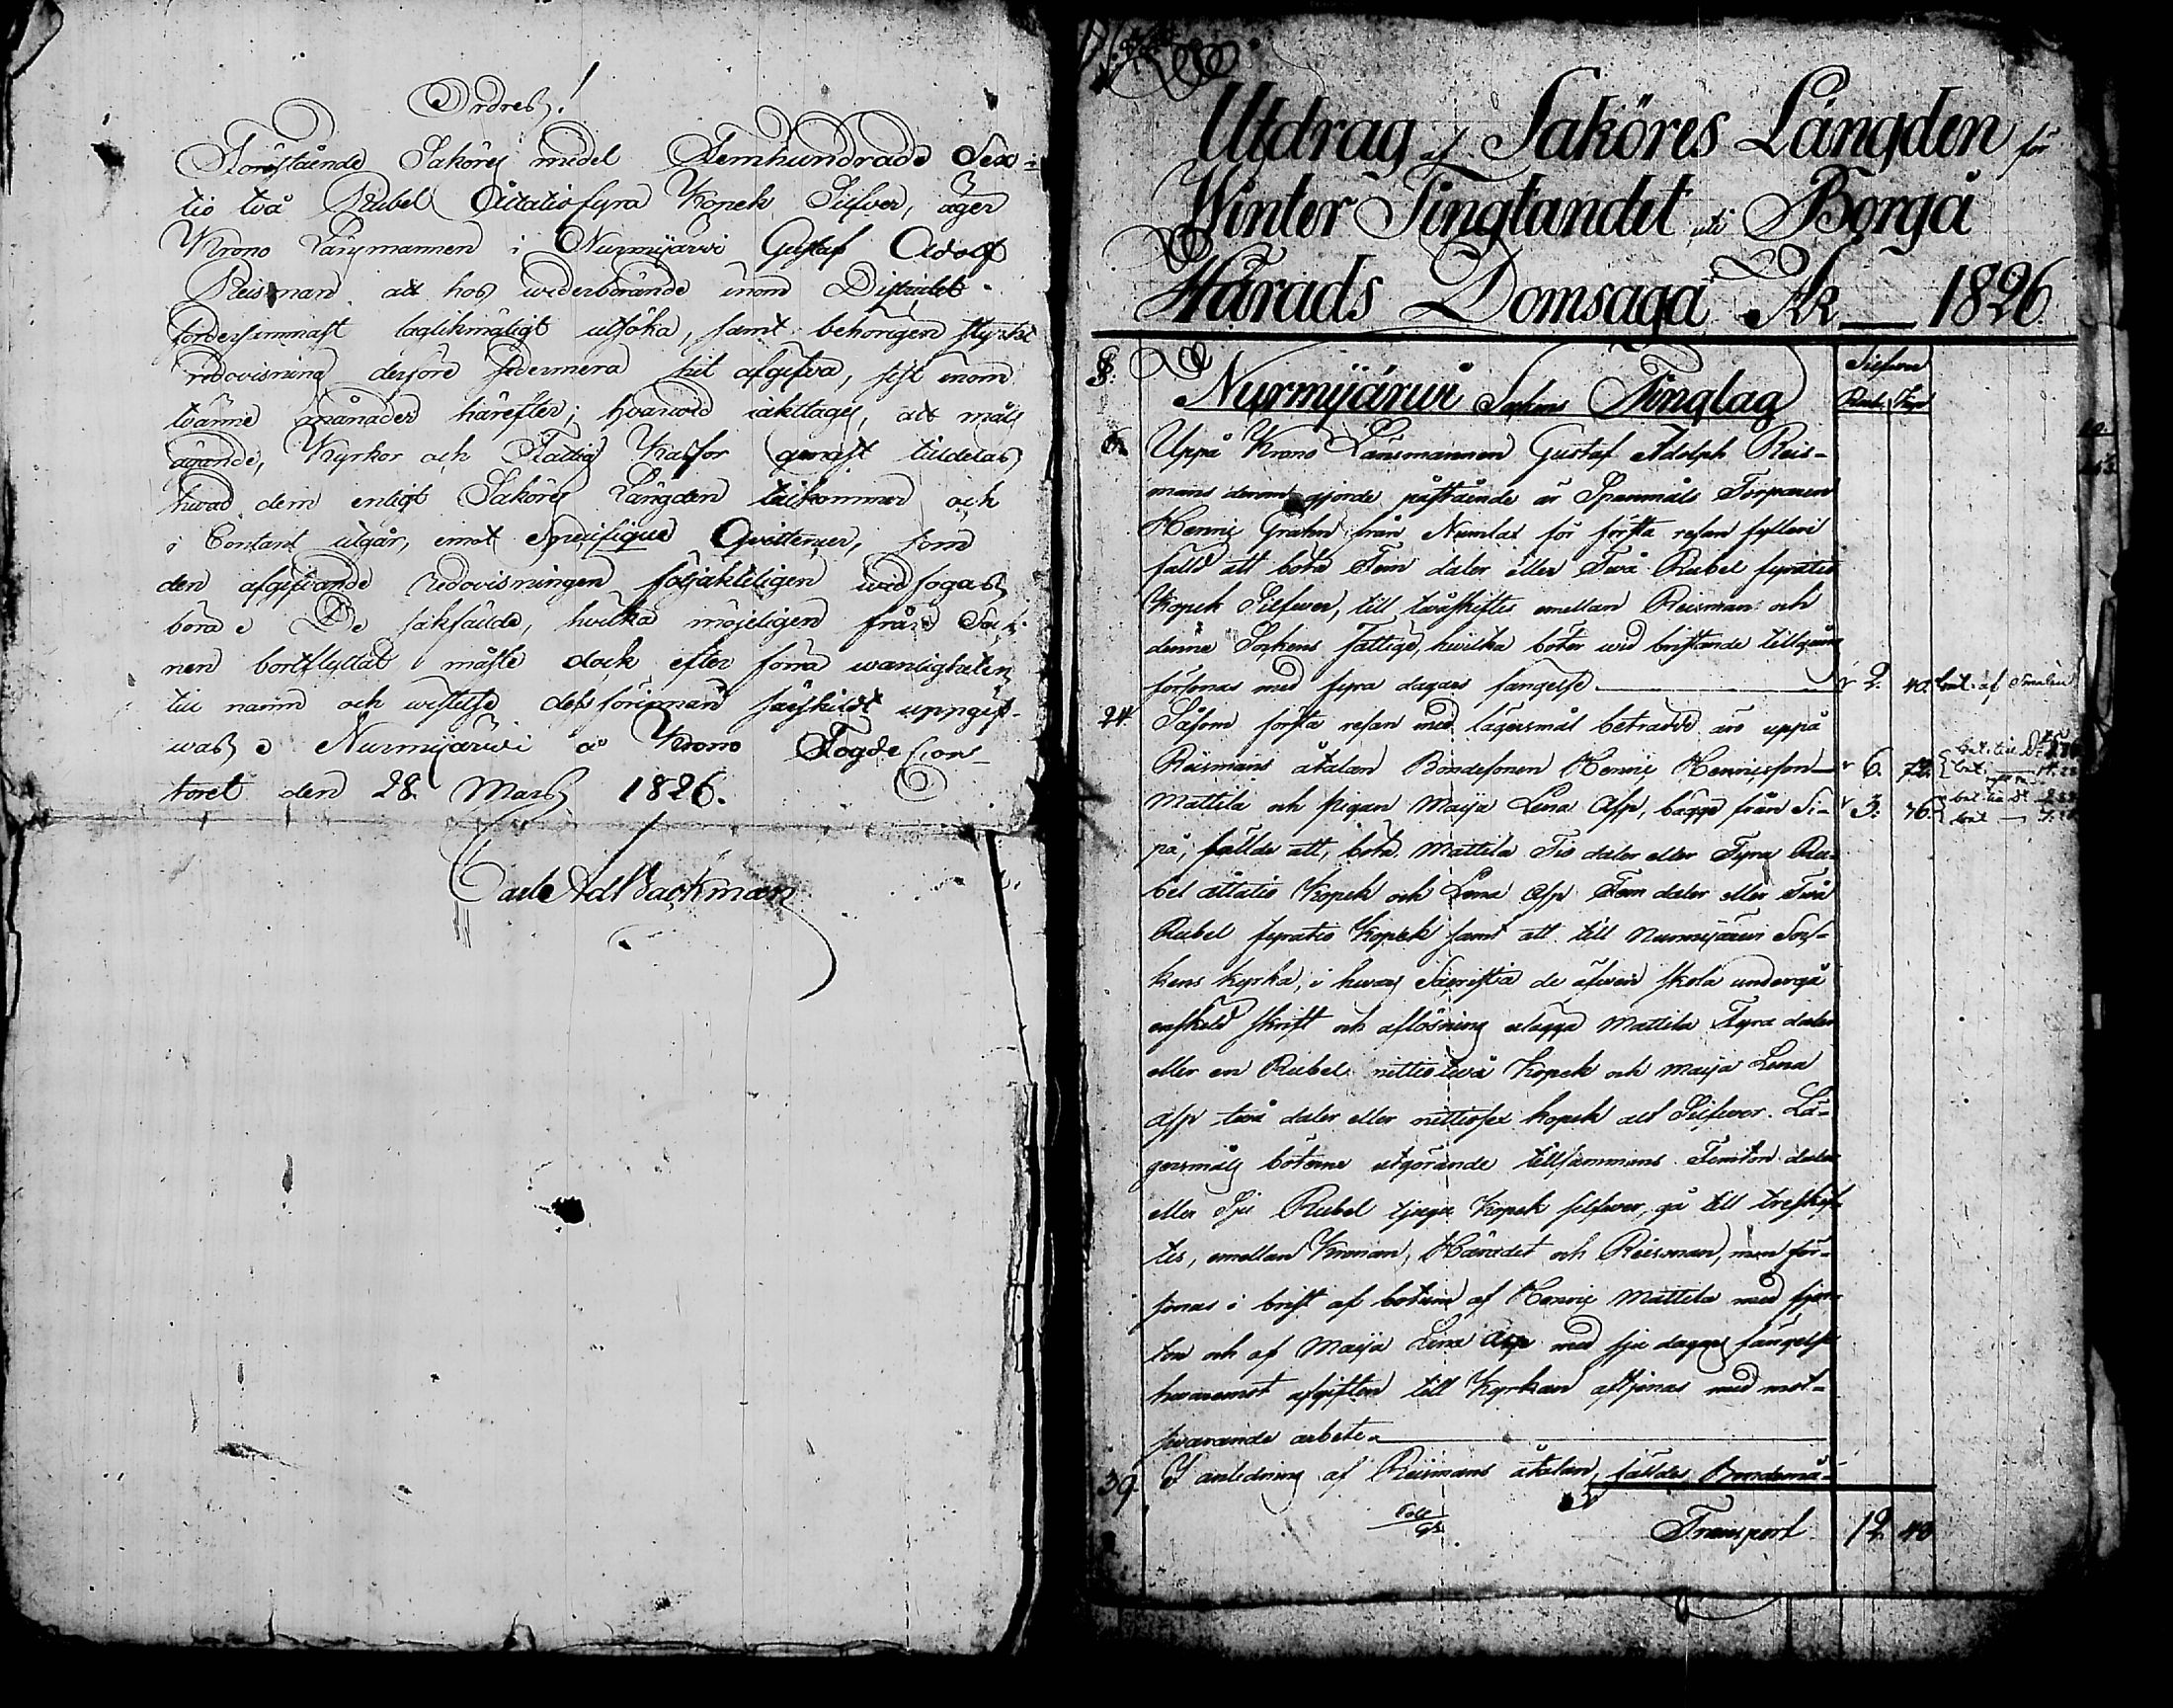 Ordres!
Förestående Saköres medel Femhundrade Sex-
tio två Rubel Åttatiofyra Kopek Silfver, äger
Krono Länsmannen i Nurmijärvi Gustaf Adolf
Reisman att hos wederbörande inom Districtet
fordersammast laglikmätigt utsöka, samt behörigen styrkt
redovisning derföre sedermera hit afgifva, sist inom
tvänne månader härefter; hvarvid iakttages, att måls
ägande, Kyrkor och Fattig Kassor genast tilldelas
hvad dem enligt Saköres Längden tillkommer och
i Contant utgår, emot Specifique Qvittencer, som
den afgifvande redovisningen följaktligen widfogas
böra. De sakfällde, hvilka möjeligen från Sock-
nen bortflyttat, måste dock efter förra wanligheten
till namn och wistelse dessförinnan särskildt uppgif-
was. Nurmijärwi å Krono Fogde Con-
toret den 28 Mars 1826.
Carl Adl Backman
Utdrag af Saköres Längden för
Winter Tingtandet uti Borgå
Härads Domsaga År 1826
§. Nurmijärwi Sokens Tinglag Silfwer
Rub. Kop.
6. Uppå Krono Länsmannen Gustaf Adolph Reis-
mans derom gjorde påstående är Spanmåls Torparen
Henric Grahn från Numlax för första resan fylleri
fälld att böta Fem daler eller Två Rubel fyratio
Kopek Silfwer, till twåskiftes emellan Reisman och
denne Sockens fattige, hwilka böter wid bristande tillgång
försonas med fyra dagars fängelse 2. 40.
24. Såsom första resan med lägersmål beträdde äro uppå
Reismans åtalan Bondesonen Henric Henricsson 6. 72.
Mattila och pigan Maija Lena Asp, bägge från Si- 3. 76.
på, fällde att, böta Mattila Tio daler eller Fyra Ru-
bel åttatio Kopek och Lena Asp Fem daler eller Två
Rubel fyratio Kopek samt att till Nurmijärwi Soc-
kens Kyrka, i hwars Sacristia de äfwen skola undergå
enskild skrift och aflösning erlägga Mattila Fyra daler
eller en Rubel nittiotwå Kopek och Maija Lena
Asp twå daler eller nittiosex kopek allt Silfwer. Lä-
gersmåls böterne utgörande tillsammans Femton daler
eller Sju Rubel tjugu Kopek silfwer, gå till treskif-
tes, emellan Kronan, Häradet och Reisman, men för-
sonas i brist af botum af Henric Mattila med fjor-
ton och af Maija Lena Asp med sju dagars fängelse
hwaremot afgiften till Kyrkan aftjenas med mot-
swarande arbete.
39. I anledning af Reismans åtalan, fälldes Bondemå-
Transport 12 40